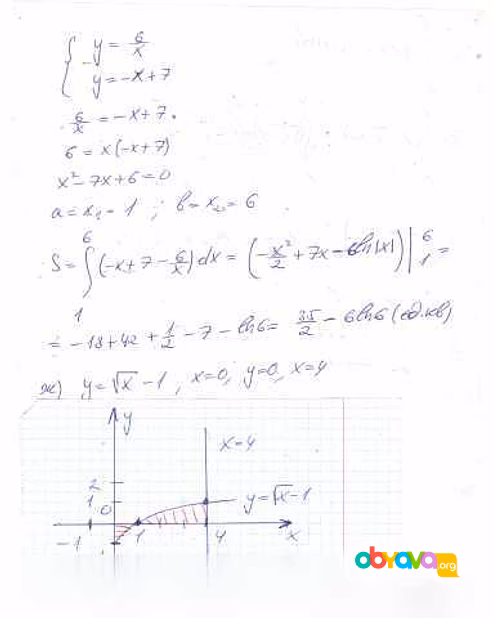 { y = 6/x
y = -x+7
6/x = -x+7.
6 = x(-x+7)
x² - 7x + 6 = 0
a = x₁ = 1 ; b = x₂ = 6
S = ∫₁⁶ (-x + 7 - 6/x) dx = (-x²/2 + 7x - 6ln|x|) |₁⁶ =
= -18 + 42 + 1/2 - 7 - ln6 = 35/2 - 6ln6 (ед.кв)
ж) y = √x - 1 , x=0, y=0, x=4
y
x=4
2
1
0
y = √x - 1
-1
1
4
x
obrava.org